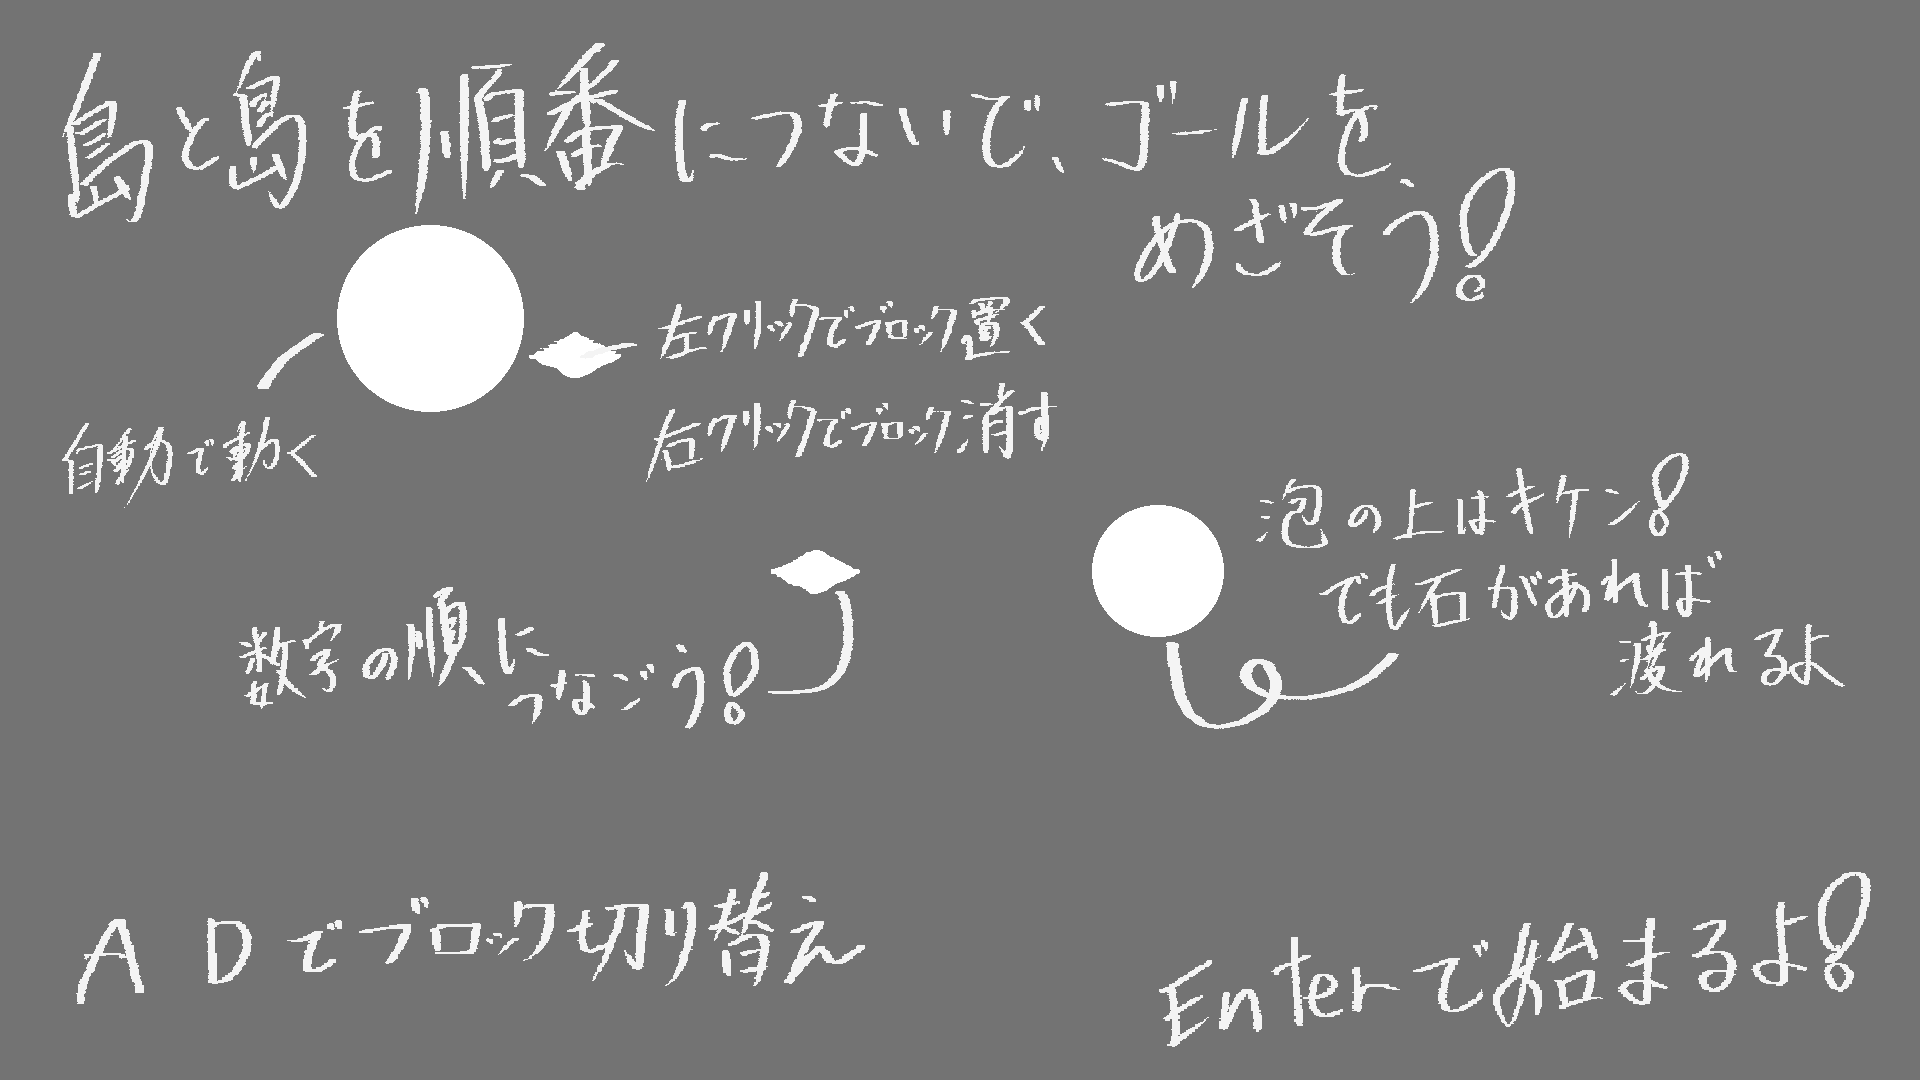 島と島を順番につないで、ゴールを
めざそう!
左クリックでブロック置く
右クリックでブロック消す
自動で動く
泡の上はキケン!
でも石があれば
渡れるよ
数字の順に
つなごう!
A Dでブロック切り替え
Enterで始まるよ!